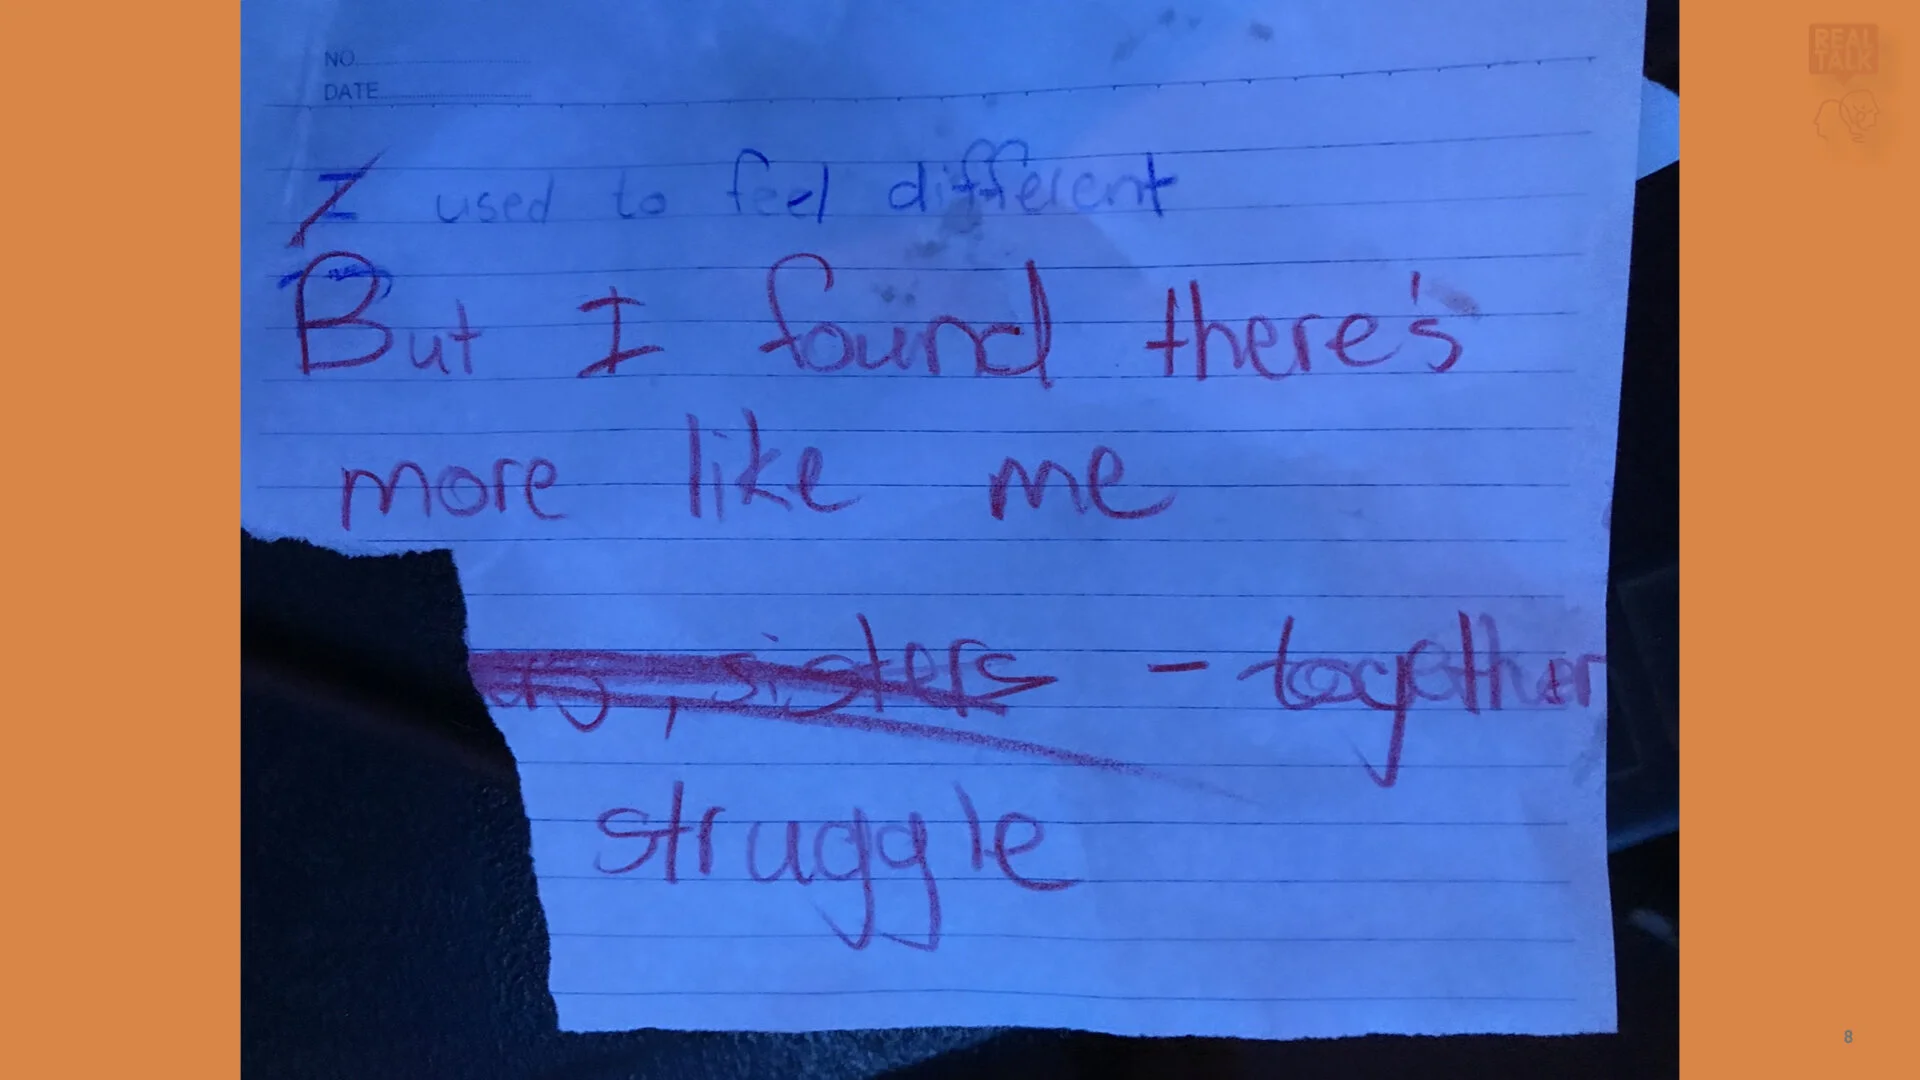 REAL
TALK
NO
DATE
I used to feel different
But I found there's
more like me
sisters - together
struggle
8